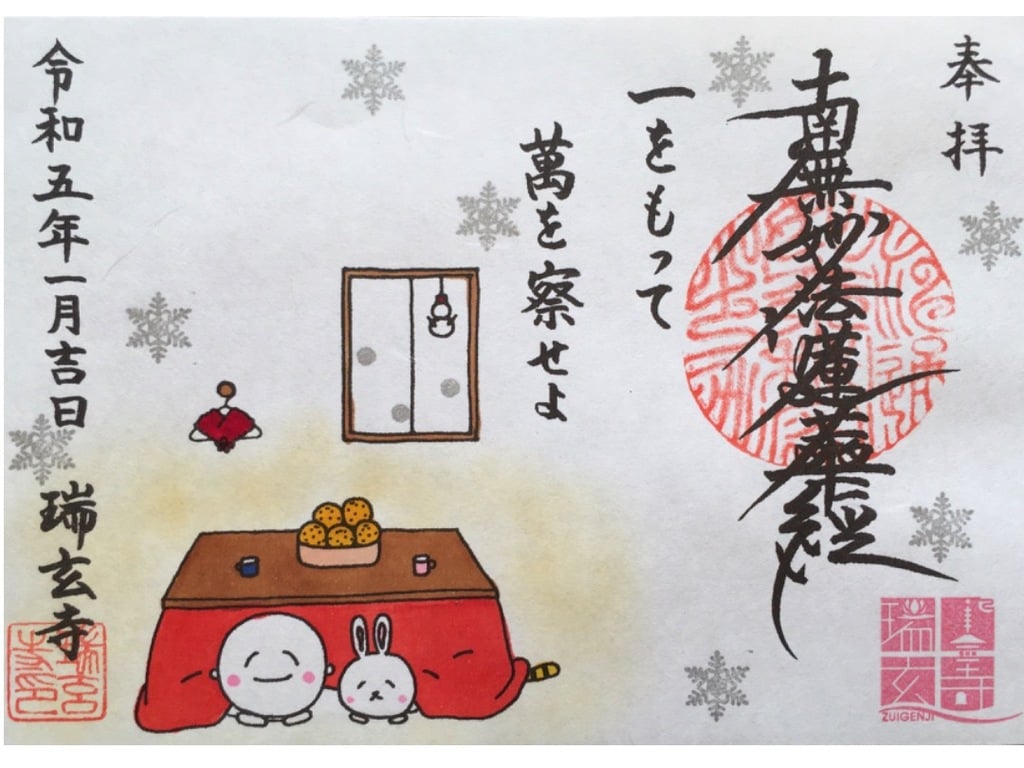 奉拝
南無妙法蓮華経
一をもって
萬を察せよ
令和五年一月吉日 瑞玄寺
瑞玄寺
ZUIGENJI